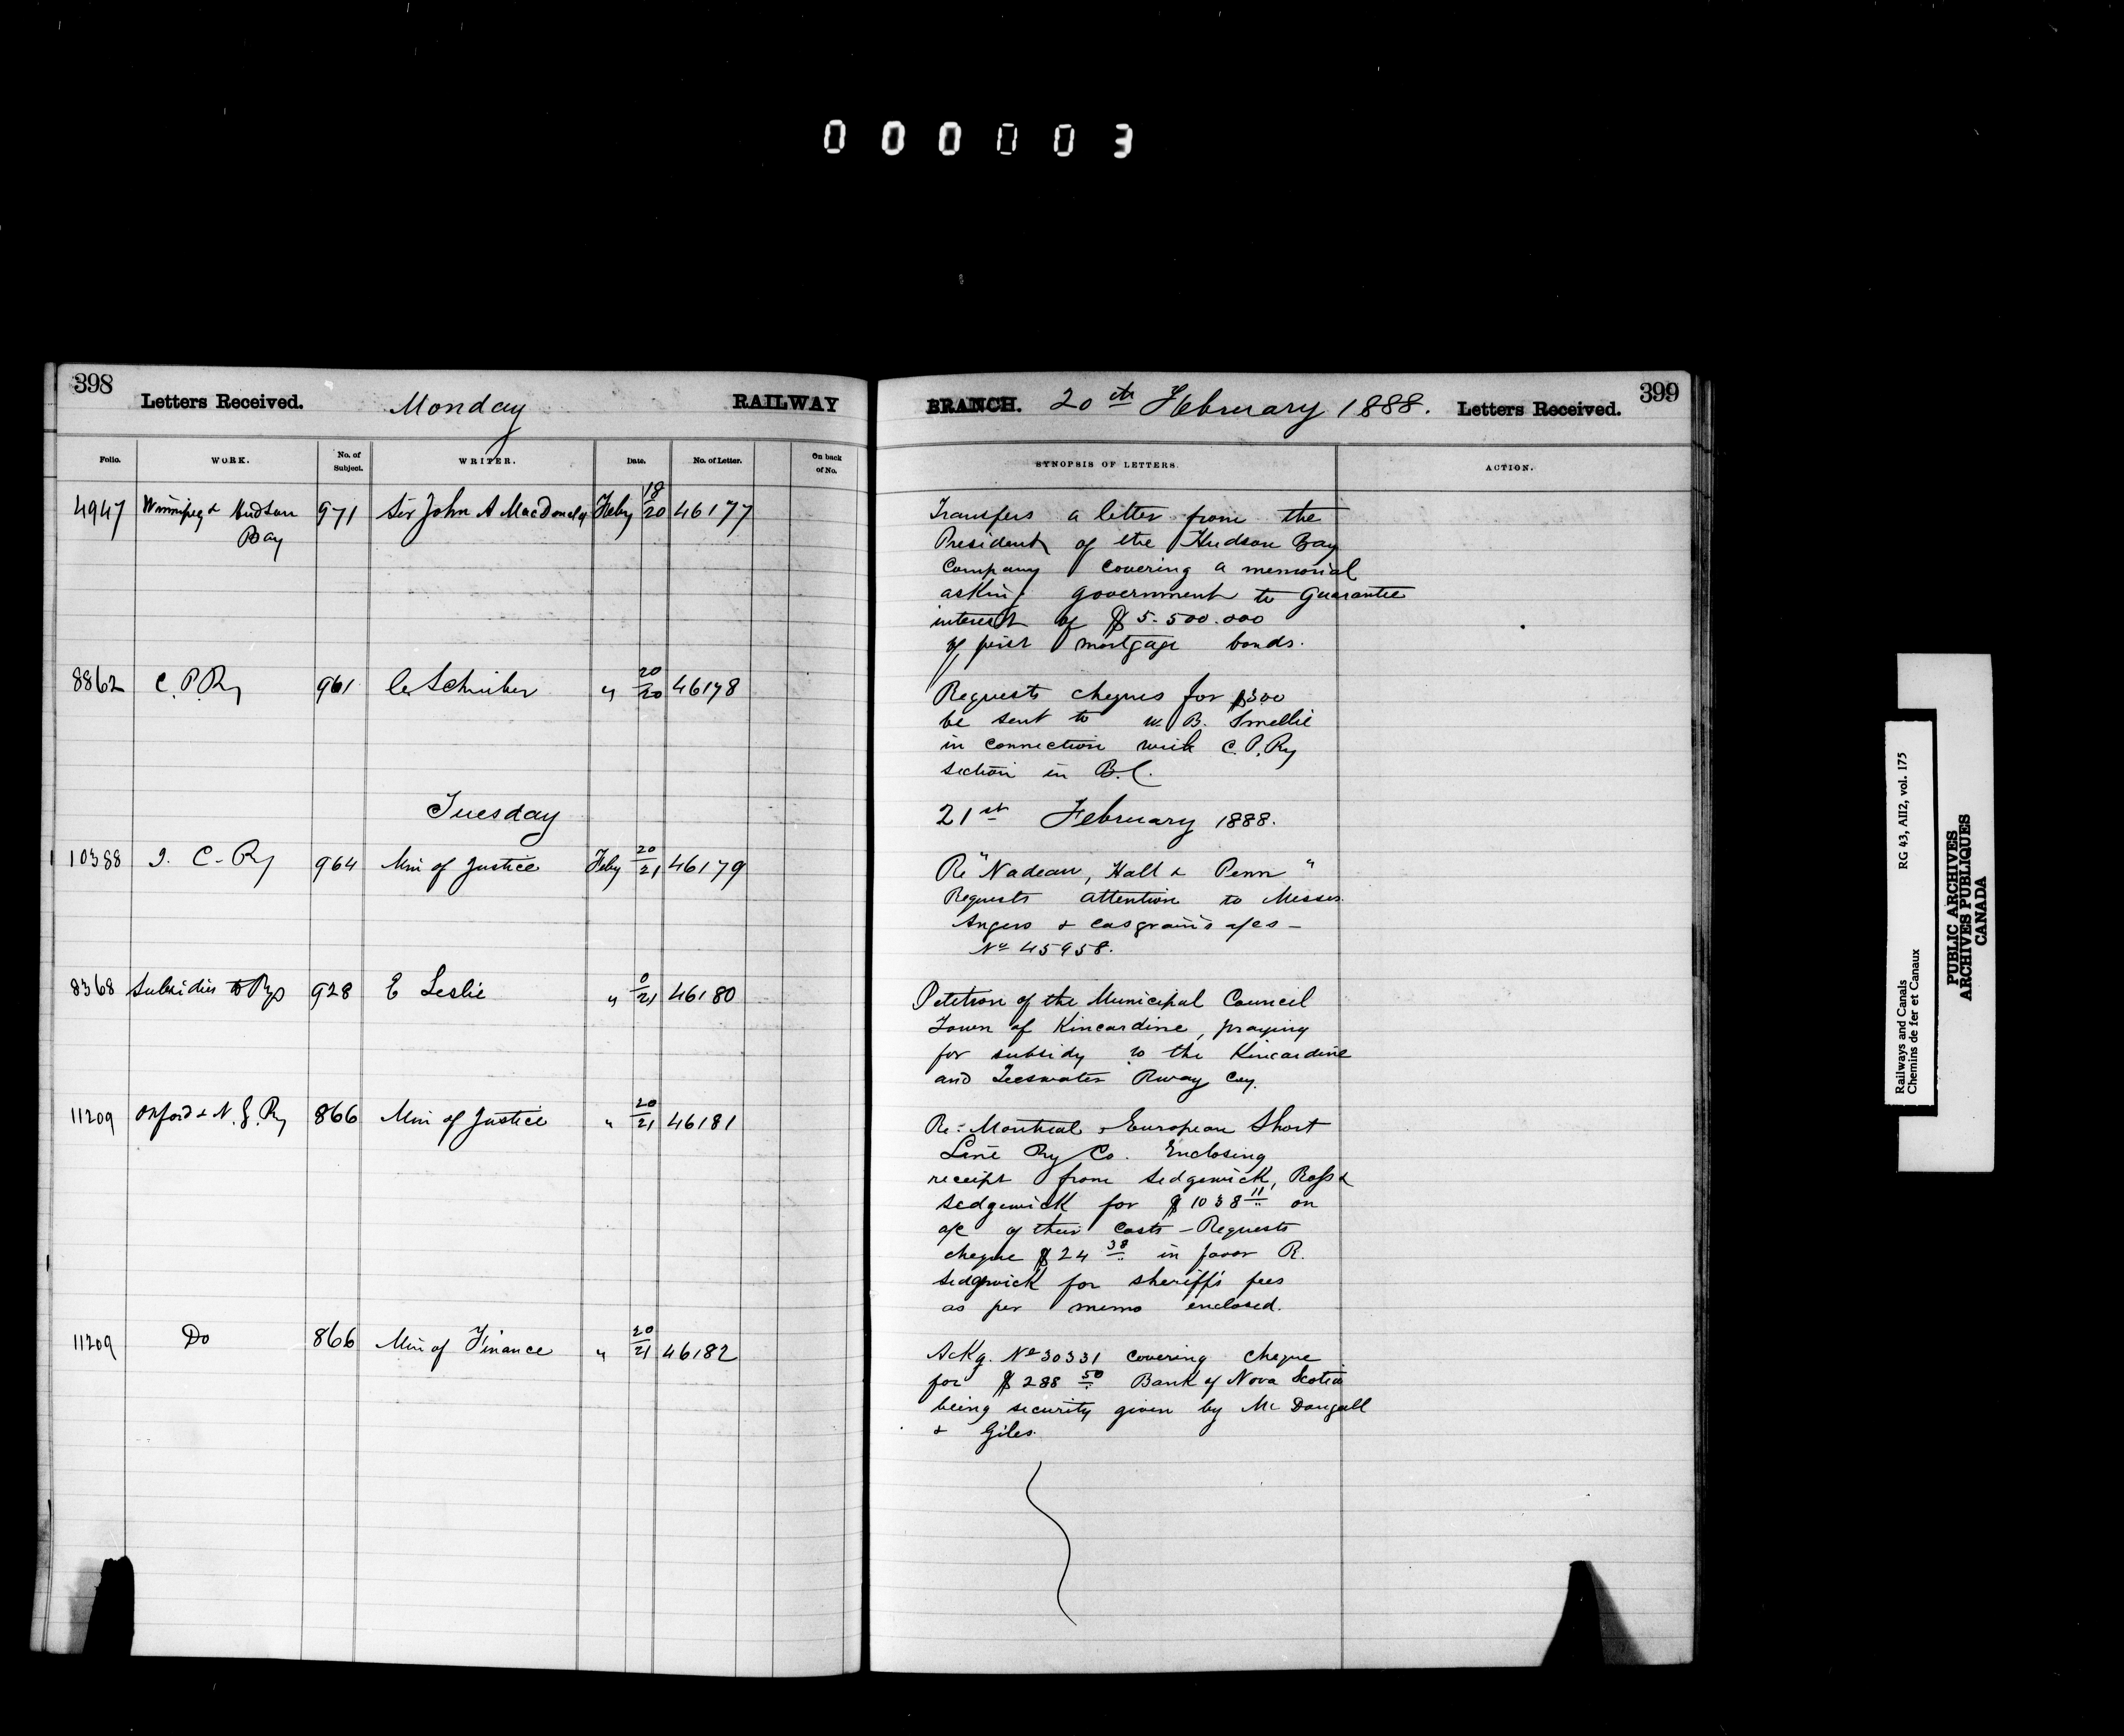 000003
398
Letters Received.
Monday
RAILWAY
Folio.
WORK.
No. of Subject.
WRITER.
Date.
No. of Letter.
On back of No.
4947 Winnipeg & Hudson 971 Sir John A MacDonald Feby 18/20 46177
Bay
8862 C. P. Ry 961 C Schreiber " 20/20 46178
Tuesday
10388 I. C. Ry 964 Min of Justice Feby 20/21 46179
8368 Subsidies to Rys 928 E Leslie " 0/21 46180
11209 Oxford & N. G. Ry 866 Min of Justice " 20/21 46181
11209 Do 866 Min of Finance " 20/21 46182
BRANCH.
20th February 1888.
Letters Received.
399
SYNOPSIS OF LETTERS.
ACTION.
Transfers a letter from the
President of the Hudson Bay
Company covering a memorial
asking government to guarantee
interest of $5.500.000
of first mortgage bonds.
Requests cheques for $300
be sent to W. B. Smellie
in connection with C. P. Ry
section in B.C.
21st February 1888.
Re "Nadeau, Hall & Penn"
Requests attention to Messrs.
Angers & Casgrain's a/cs —
No 45958.
Petition of the Municipal Council
Town of Kincardine, praying
for subsidy to the Kincardine
and Teeswater Rway Coy.
Re: Montreal & European Short
Line Ry Co. Enclosing
receipt from Sedgewick, Ross &
Sedgewick for $1038 11 on
a/c of their costs — Requests
cheque $24 38 in favor R.
Sedgwick for sheriff's fees
as per memo enclosed.
Ackg. No 30331 covering cheque
for $288 50 Bank of Nova Scotia
being security given by McDougall
& Giles.
Railways and Canals RG 43, AII2, vol. 175
Chemins de fer et Canaux
PUBLIC ARCHIVES
ARCHIVES PUBLIQUES
CANADA